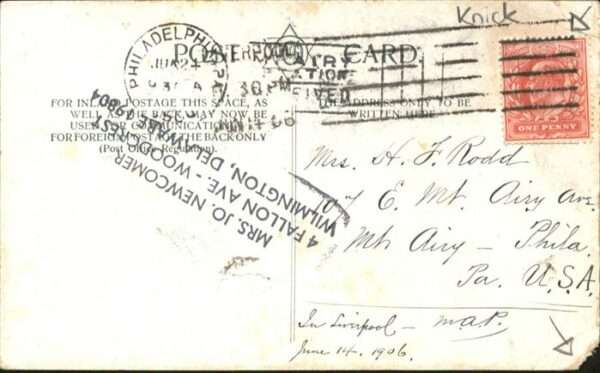 Knick
POST CARD.
PHILADELPHIA, PA.
JUN 24
30 PM
JUN 14 06
ONE PENNY
FOR INLAND POSTAGE THIS SPACE, AS
WELL AS THE BACK, MAY NOW BE
USED FOR COMMUNICATION.
FOR FOREIGN POST THE BACK ONLY
(Post Office Regulation).
THE ADDRESS ONLY TO BE
WRITTEN HERE
MRS. JO. NEWCOMER
4 FALLON AVE. - WOOD
WILMINGTON, DEL
Mrs. H. F. Rodd
107 E. Mt. Airy Ave.
Mt Airy - Phila.
Pa. U.S.A.
In Liverpool - M.A.R.
June 14. 1906.